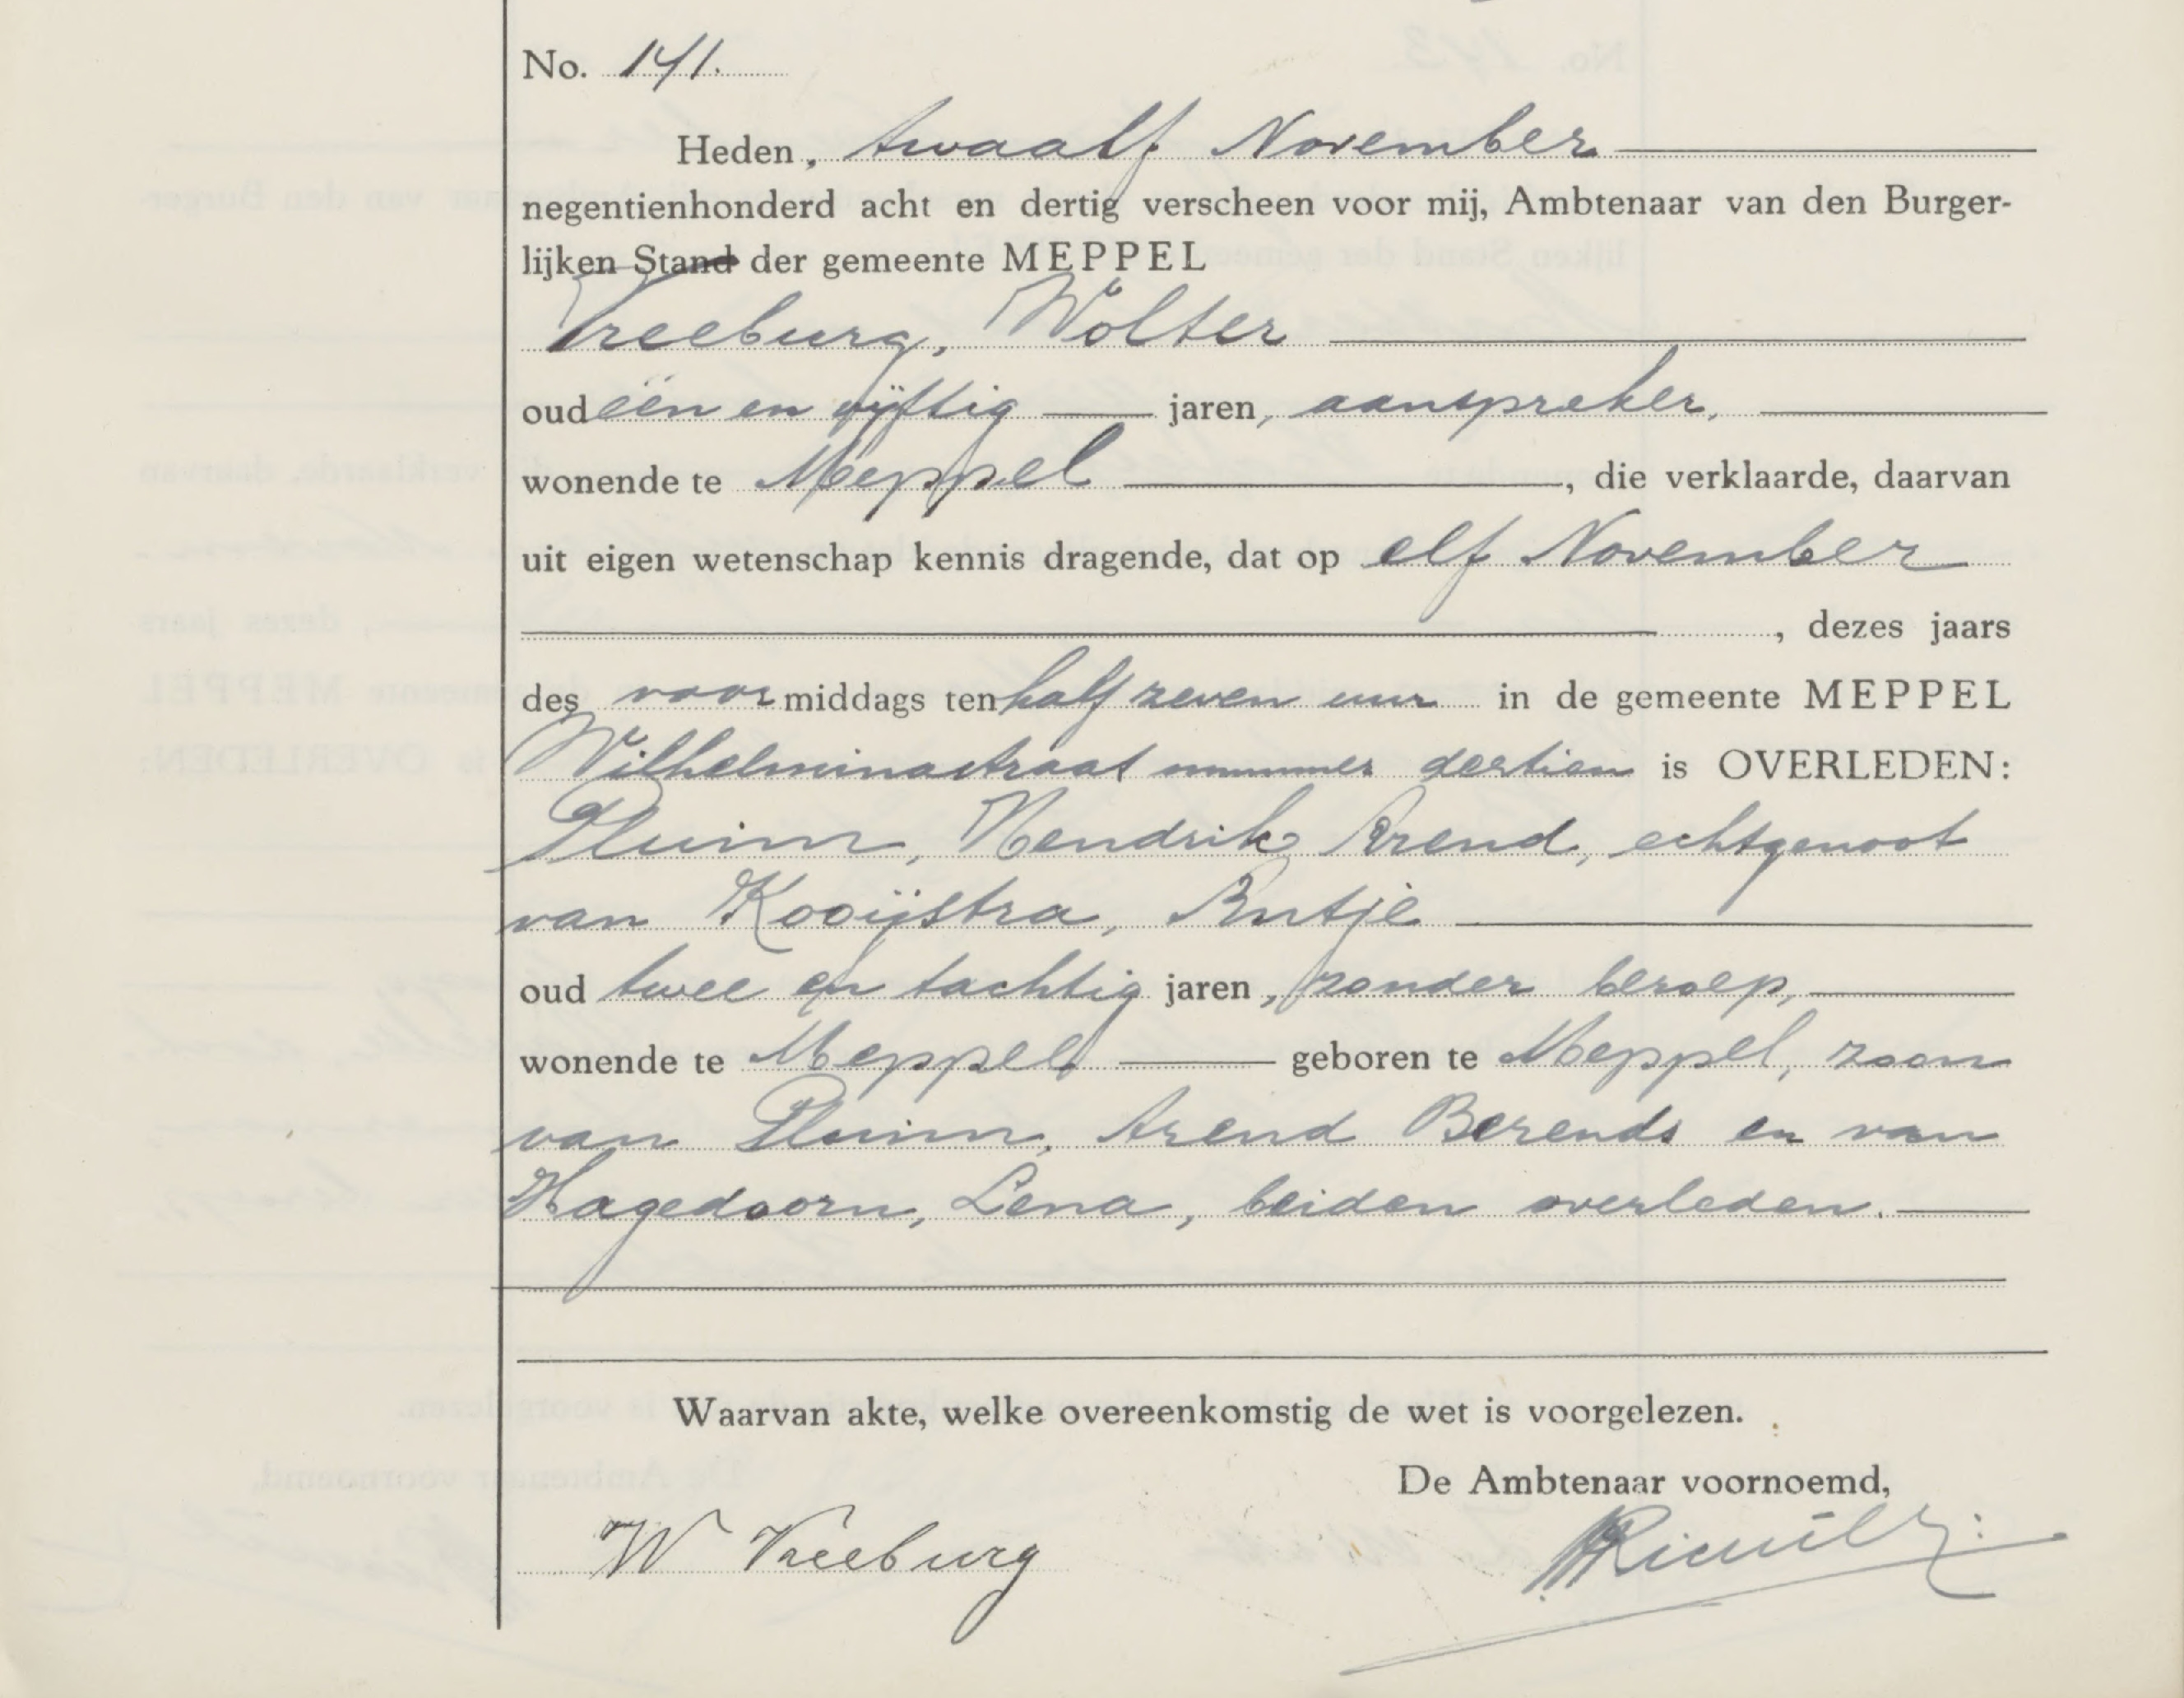 No. 141.
Heden, twaalf November
negentienhonderd acht en dertig verscheen voor mij, Ambtenaar van den Burger-
lijken Stand der gemeente MEPPEL
Vreeburg, Wolter
oud één en vijftig jaren, aanspreker,
wonende te Meppel, die verklaarde, daarvan
uit eigen wetenschap kennis dragende, dat op elf November
, dezes jaars
des voormiddags ten half zeven uur in de gemeente MEPPEL
Wilhelminastraat nummer dertien is OVERLEDEN:
Pluim, Hendrik Arend, echtgenoot
van Kooijstra, Antje
oud twee en tachtig jaren, zonder beroep,
wonende te Meppel geboren te Meppel, zoon
van Pluim, Arend Berends en van
Hagedoorn, Lena, beiden overleden.
Waarvan akte, welke overeenkomstig de wet is voorgelezen.
De Ambtenaar voornoemd,
W Vreeburg